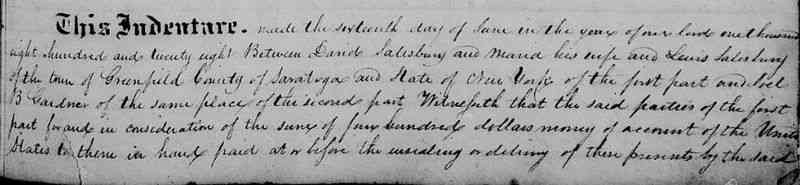 This Indenture. made the sixteenth day of June in the year of our lord one thousand
eight hundred and twenty eight Between David Salesbury and his wife and Lewis Salesbury
of the town of Greenfield County of Saratoga and State of New York of the first part and Joel
B Gardner of the same place of the second part Witnesseth that the said parties of the first
part for and in consideration of the sum of four hundred dollars money of account of the United
States to them in hand paid at or before the ensealing or delivery of these presents by the said